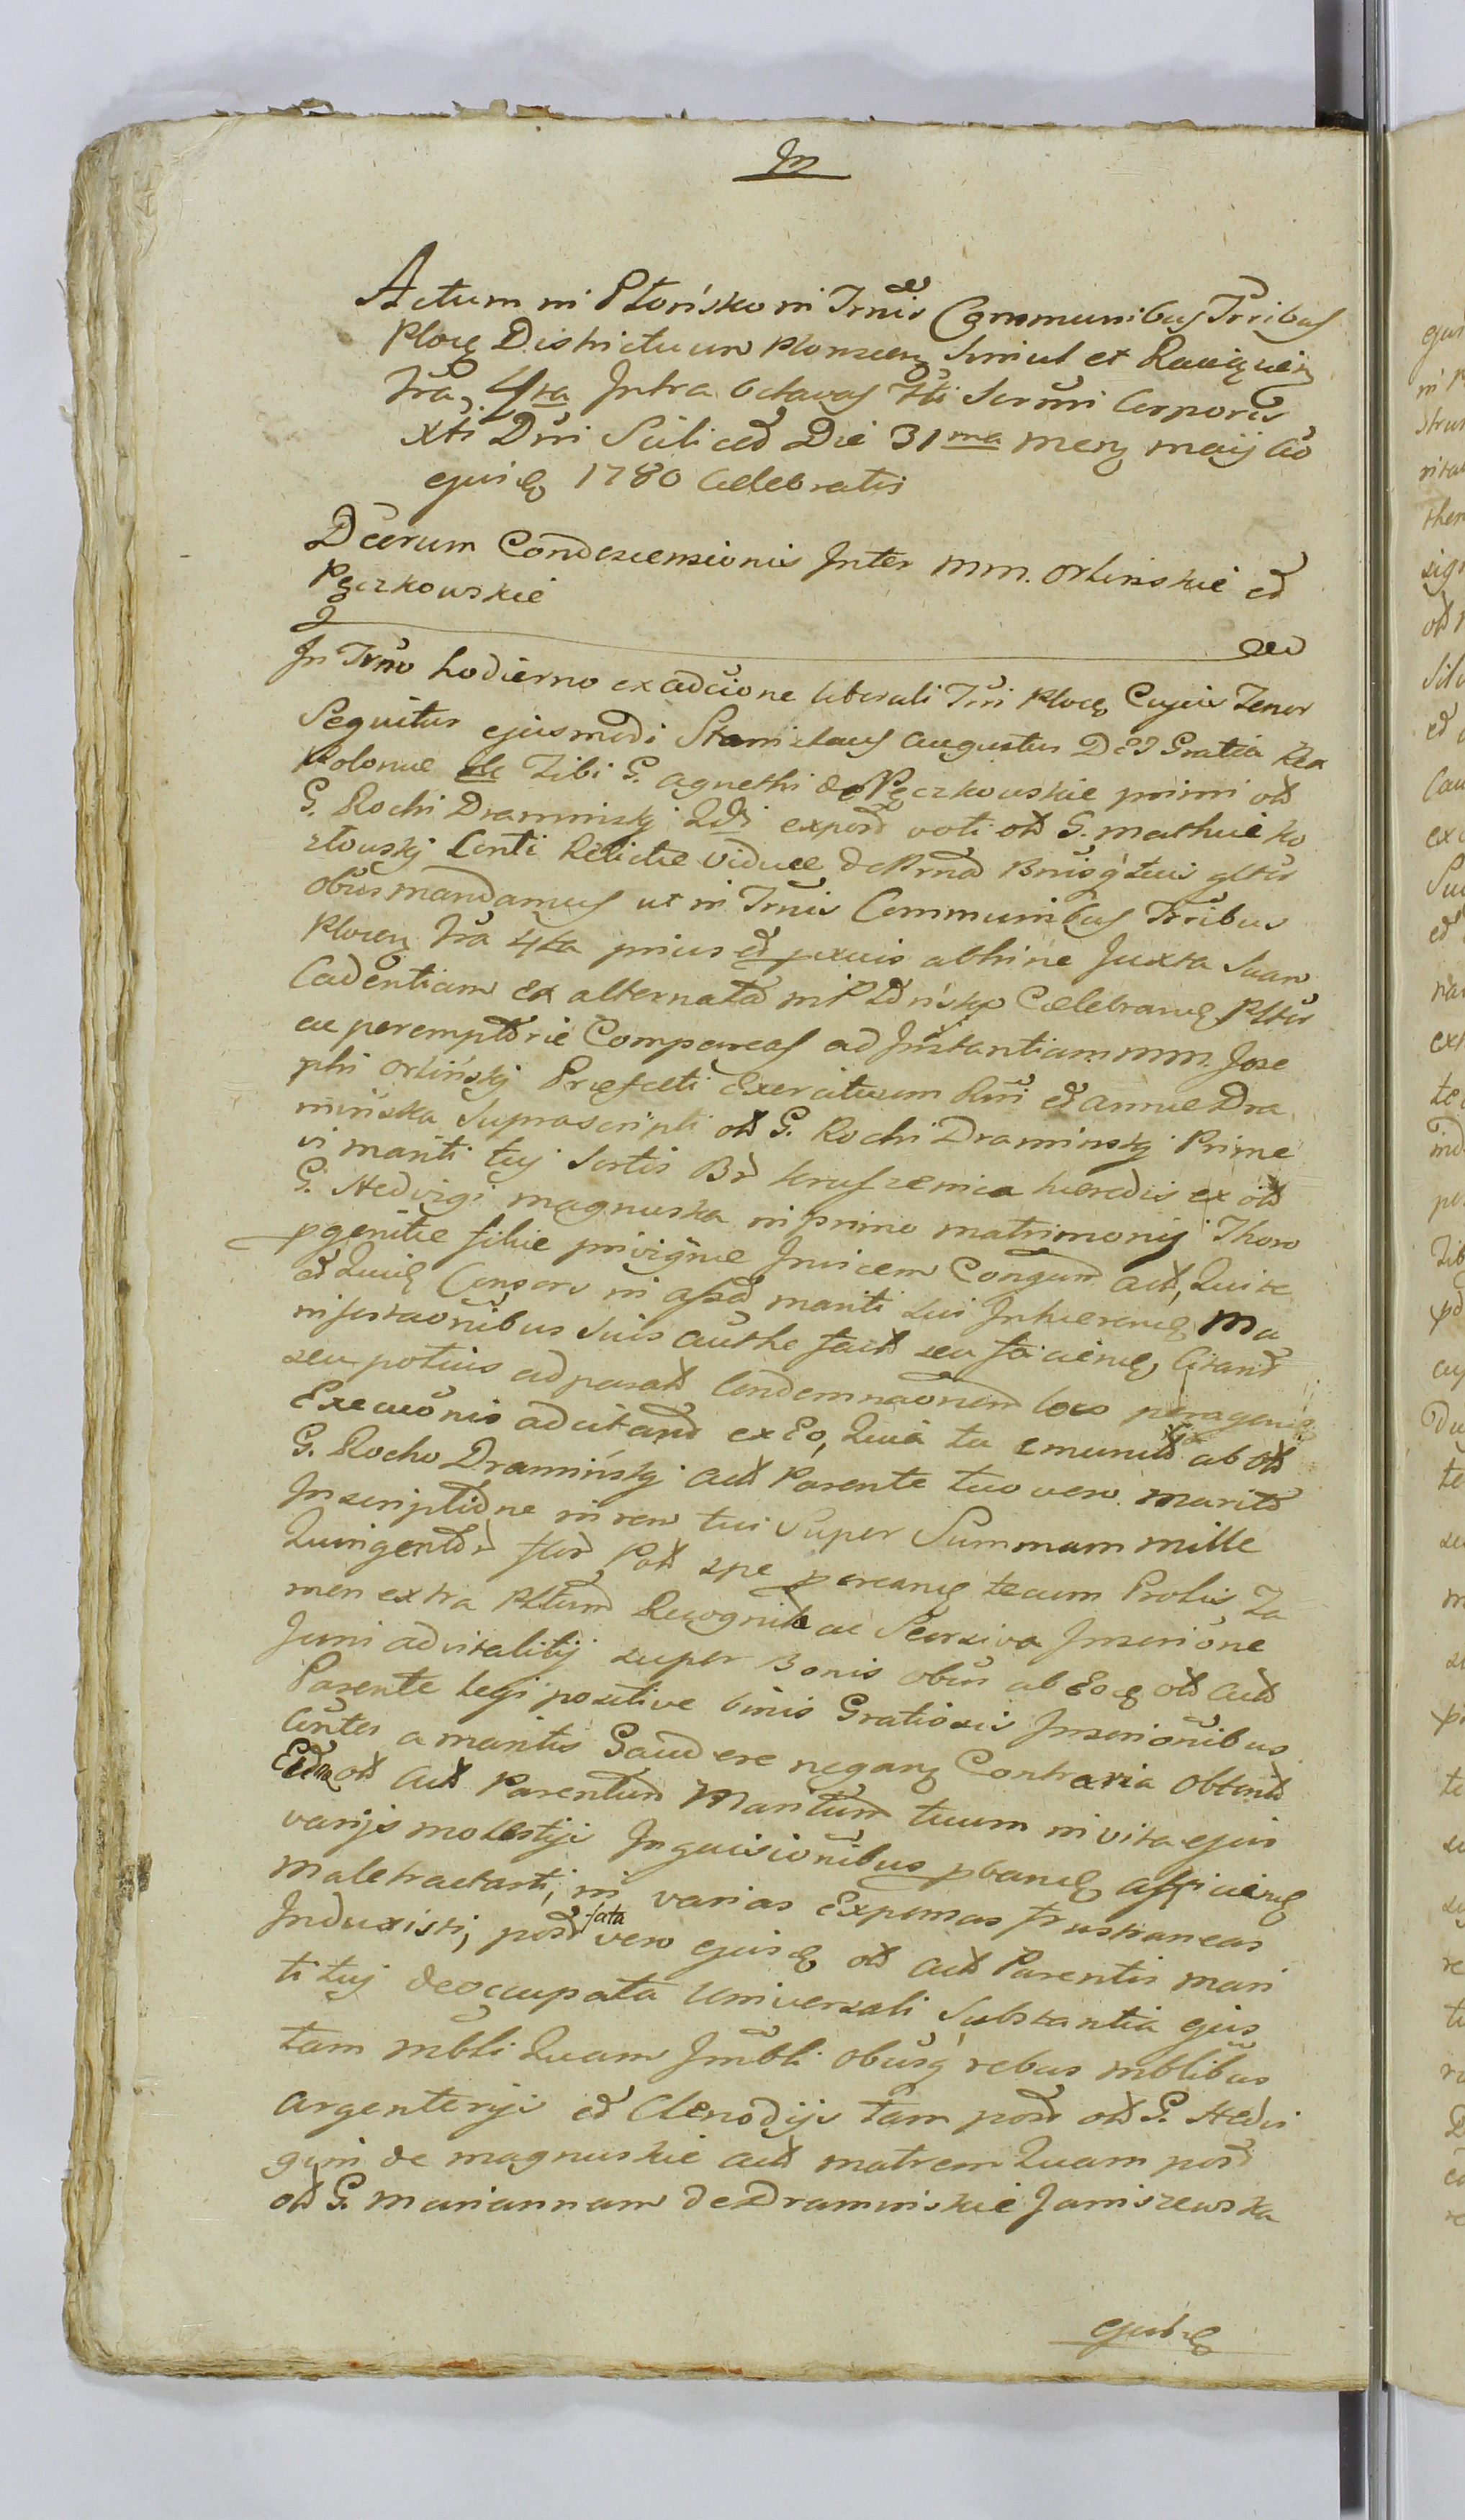 M
Actum in Płońsko in Trnis Communibus Trribus
Ploce Districtuum Plonscens Simul et Raciązien
fria 4ta Intra Octavas fti Ssrmi Corporis
Xti Dni Scilicet Die 31ma mens maij Ao
ejusd 1780 Celebratis
Dcerum Condescensionis Inter MM. Orlinskie et
Pęczkowskie
In Trno hodierno ex adcione liberali Trri Ploce Cujus Tenor
Sequitur ejusmodi Stanislaus Augustus DEI Gratia Rex
Polonue etc Tibi G. Agnethi de Pęczkowskie primi olt
G. Rochi Draminskj 2di expost voti olt G. Mathuie Ko
złouskj Conti Relictue Viduue de Prnd Bnisq tuis gltis
obus mandamus ut in Trnis Communibus Trribus
Plocen fria 4ta prius et pxuis abhinc Juxta Suam
Cadentiam et alternatad in Płońsko Celebrand Pltis
ac peremptorie Compareas ad Instantiam MM. Jose
phi Orlińskj Prefecti Exercituum Rni et Annue Dra
mińska Suprascripti olt G. Rochi Draminskj Prime
vi mariti tuj Sortis Br Kruszenica hueredis ex olt
G. Hedvigi Magnuska in primo matrimonij Thoro
pgenitue filiue privignue Invicem Congum act, Qui te
et Quud Consors in assd mariti sui Inhuerend Ma
nifestaonibus suis authe factt seu faciend, Citant
seu potius ad parat Condemnaonem loco peragend
Execuonis adcitand ex Eo, Quia tu emunita ab olt
G. Rocho Draminskj act Parente tuo vero marito
Inscriptione in rem tui Super Summam mille
Quingentor flor Pol spe pcreand tecum Prolis, Ta
men extra Pltum Recognita ac Seorsiva Inserione
Juni advitalitij super Bonis obus ab Eod olt act
Parente legi positive binis Gratiosis Inserionibus
Cuntes a maritis Gaudere negans Contraria Obtenta
Eidem olt act Parentum Maritum tuum in vita ejus
varijs molestijs Inquisionibus pband afficiend
maletractasti, in varias Expensas frustraneas
Induxisti, post fata vero ejusd olt act Parentis mari
ti tuj deoccupata Universali Substantia ejus
tam mbli Quam Imbli obusq rebus mblibus
Argenterijs et Clenodijs tam post olt G. Hedvi
gim de Magnuskie act matrem Quam post
olt G. Mariannam de Draminskie Janiszewska
ejusd